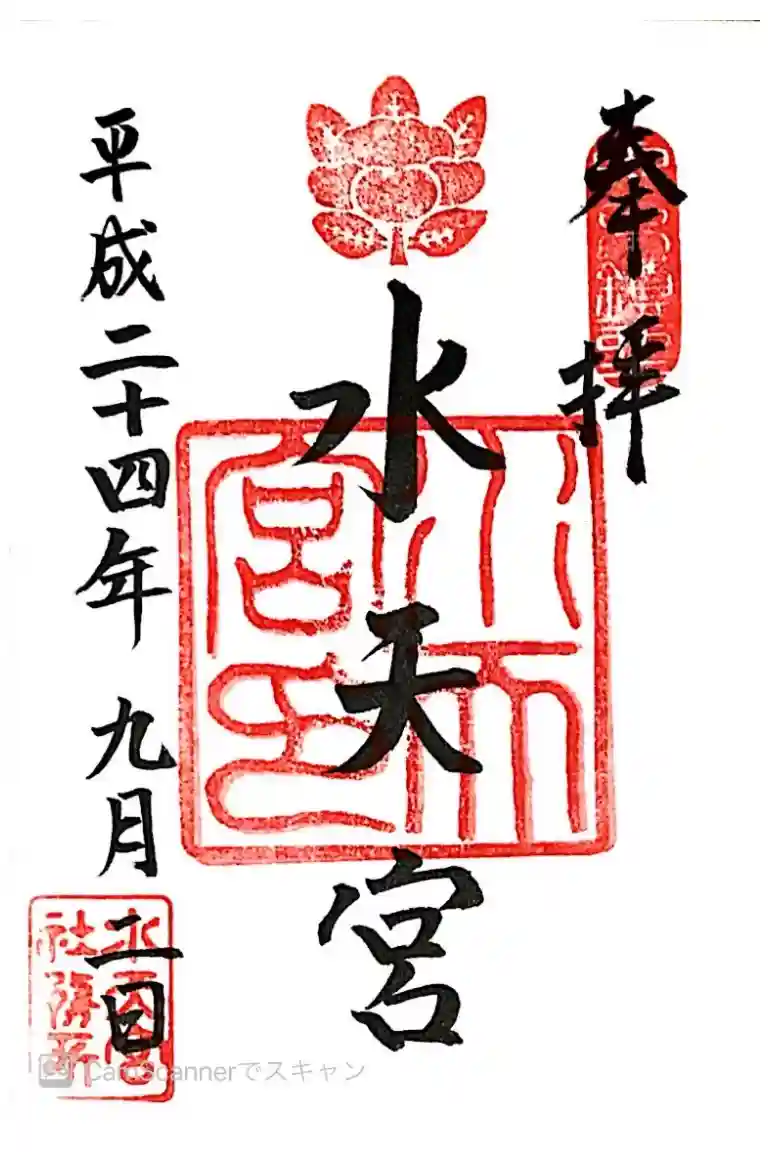 奉拝
水天宮
水天宮印
平成二十四年 九月 二日
水天宮
社務所
CamScannerでスキャン